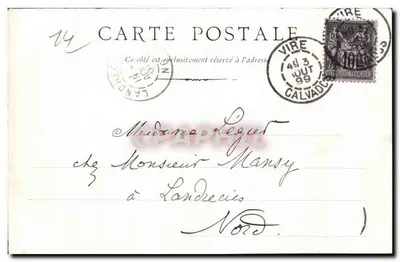 14
CARTE POSTALE
Ce côté est exclusivement réservé à l'adresse
VIRE
3
AOUT
99
CALVADOS
LANDRE
VIRE
10
Madame Legur
chez Monsieur Mansy
à Landrecies
Nord.